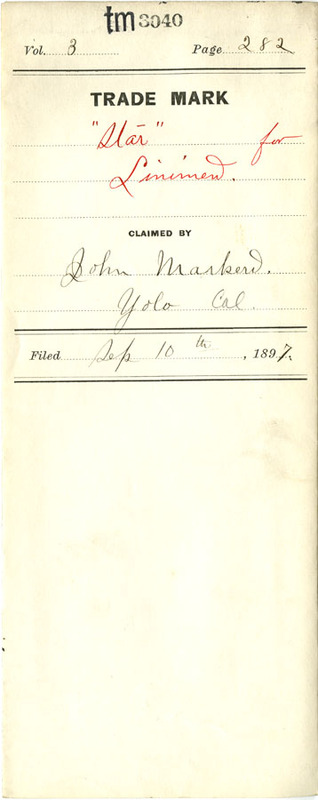 tm 3040
Vol. 3 Page 282
TRADE MARK
"Star" for
Liniment.
CLAIMED BY
John Markerd.
Yolo Cal.
Filed Sep 10th, 1897.